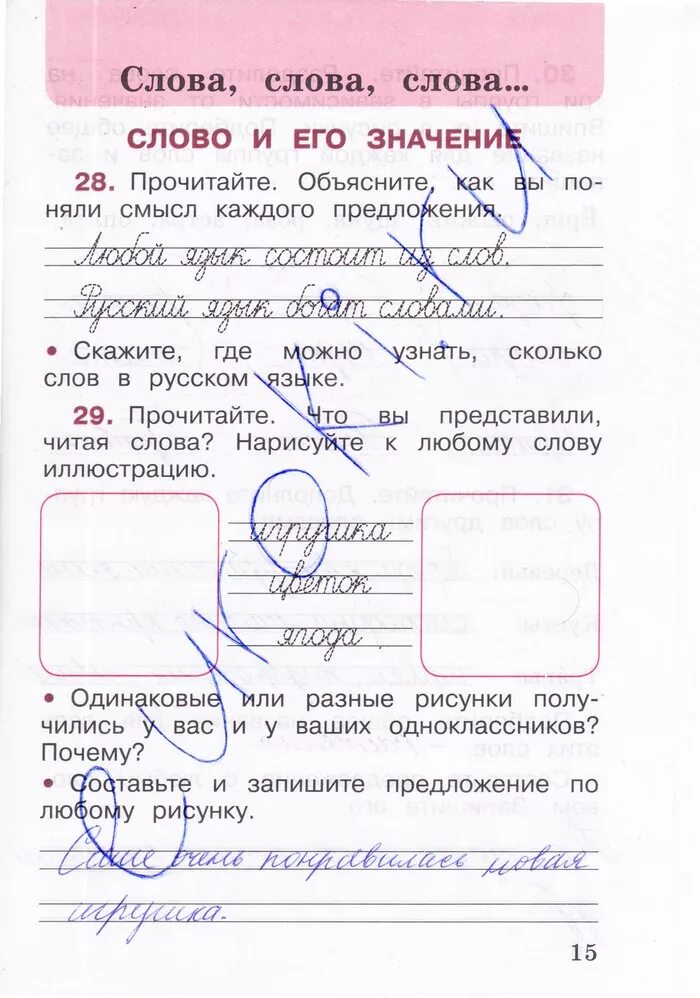 Слова, слова, слова...
СЛОВО И ЕГО ЗНАЧЕНИЕ
28. Прочитайте. Объясните, как вы по-
няли смысл каждого предложения.
Любой язык состоит из слов.
Русский язык богат словами.
• Скажите, где можно узнать, сколько
слов в русском языке.
29. Прочитайте. Что вы представили,
читая слова? Нарисуйте к любому слову
иллюстрацию.
игрушка
цветок
ягода
• Одинаковые или разные рисунки полу-
чились у вас и у ваших одноклассников?
Почему?
• Составьте и запишите предложение по
любому рисунку.
Саше очень понравилась новая
игрушка.
15